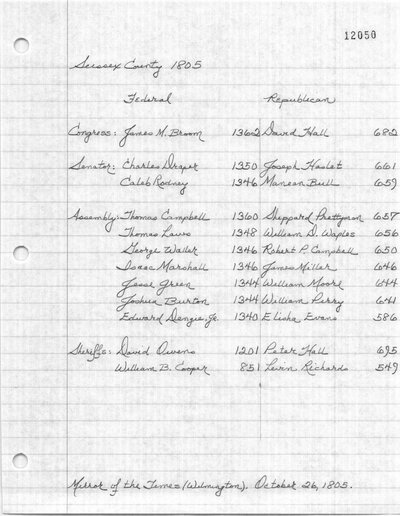 12050
Sussex County 1805
Federal Republican
Congress: James M. Broom 1362 David Hall 682
Senator: Charles Draper 1350 Joseph Haslet 661
Caleb Rodney 1346 Manean Bull 659
Assembly: Thomas Campbell 1360 Sheppard Prettyman 657
Thomas Laws 1348 William D. Waples 656
George Waller 1346 Robert P. Campbell 650
Isaac Marshall 1346 James Miller 646
Jesse Green 1344 William Moore 644
Joshua Burton 1344 William Perry 641
Edward Dingle, Jr. 1340 Elisha Evans 586
Sheriffs: David Owens 1201 Peter Hall 695
William B. Cooper 851 Lurn Richards 549
Mirror of the Times (Wilmington). October 26, 1805.